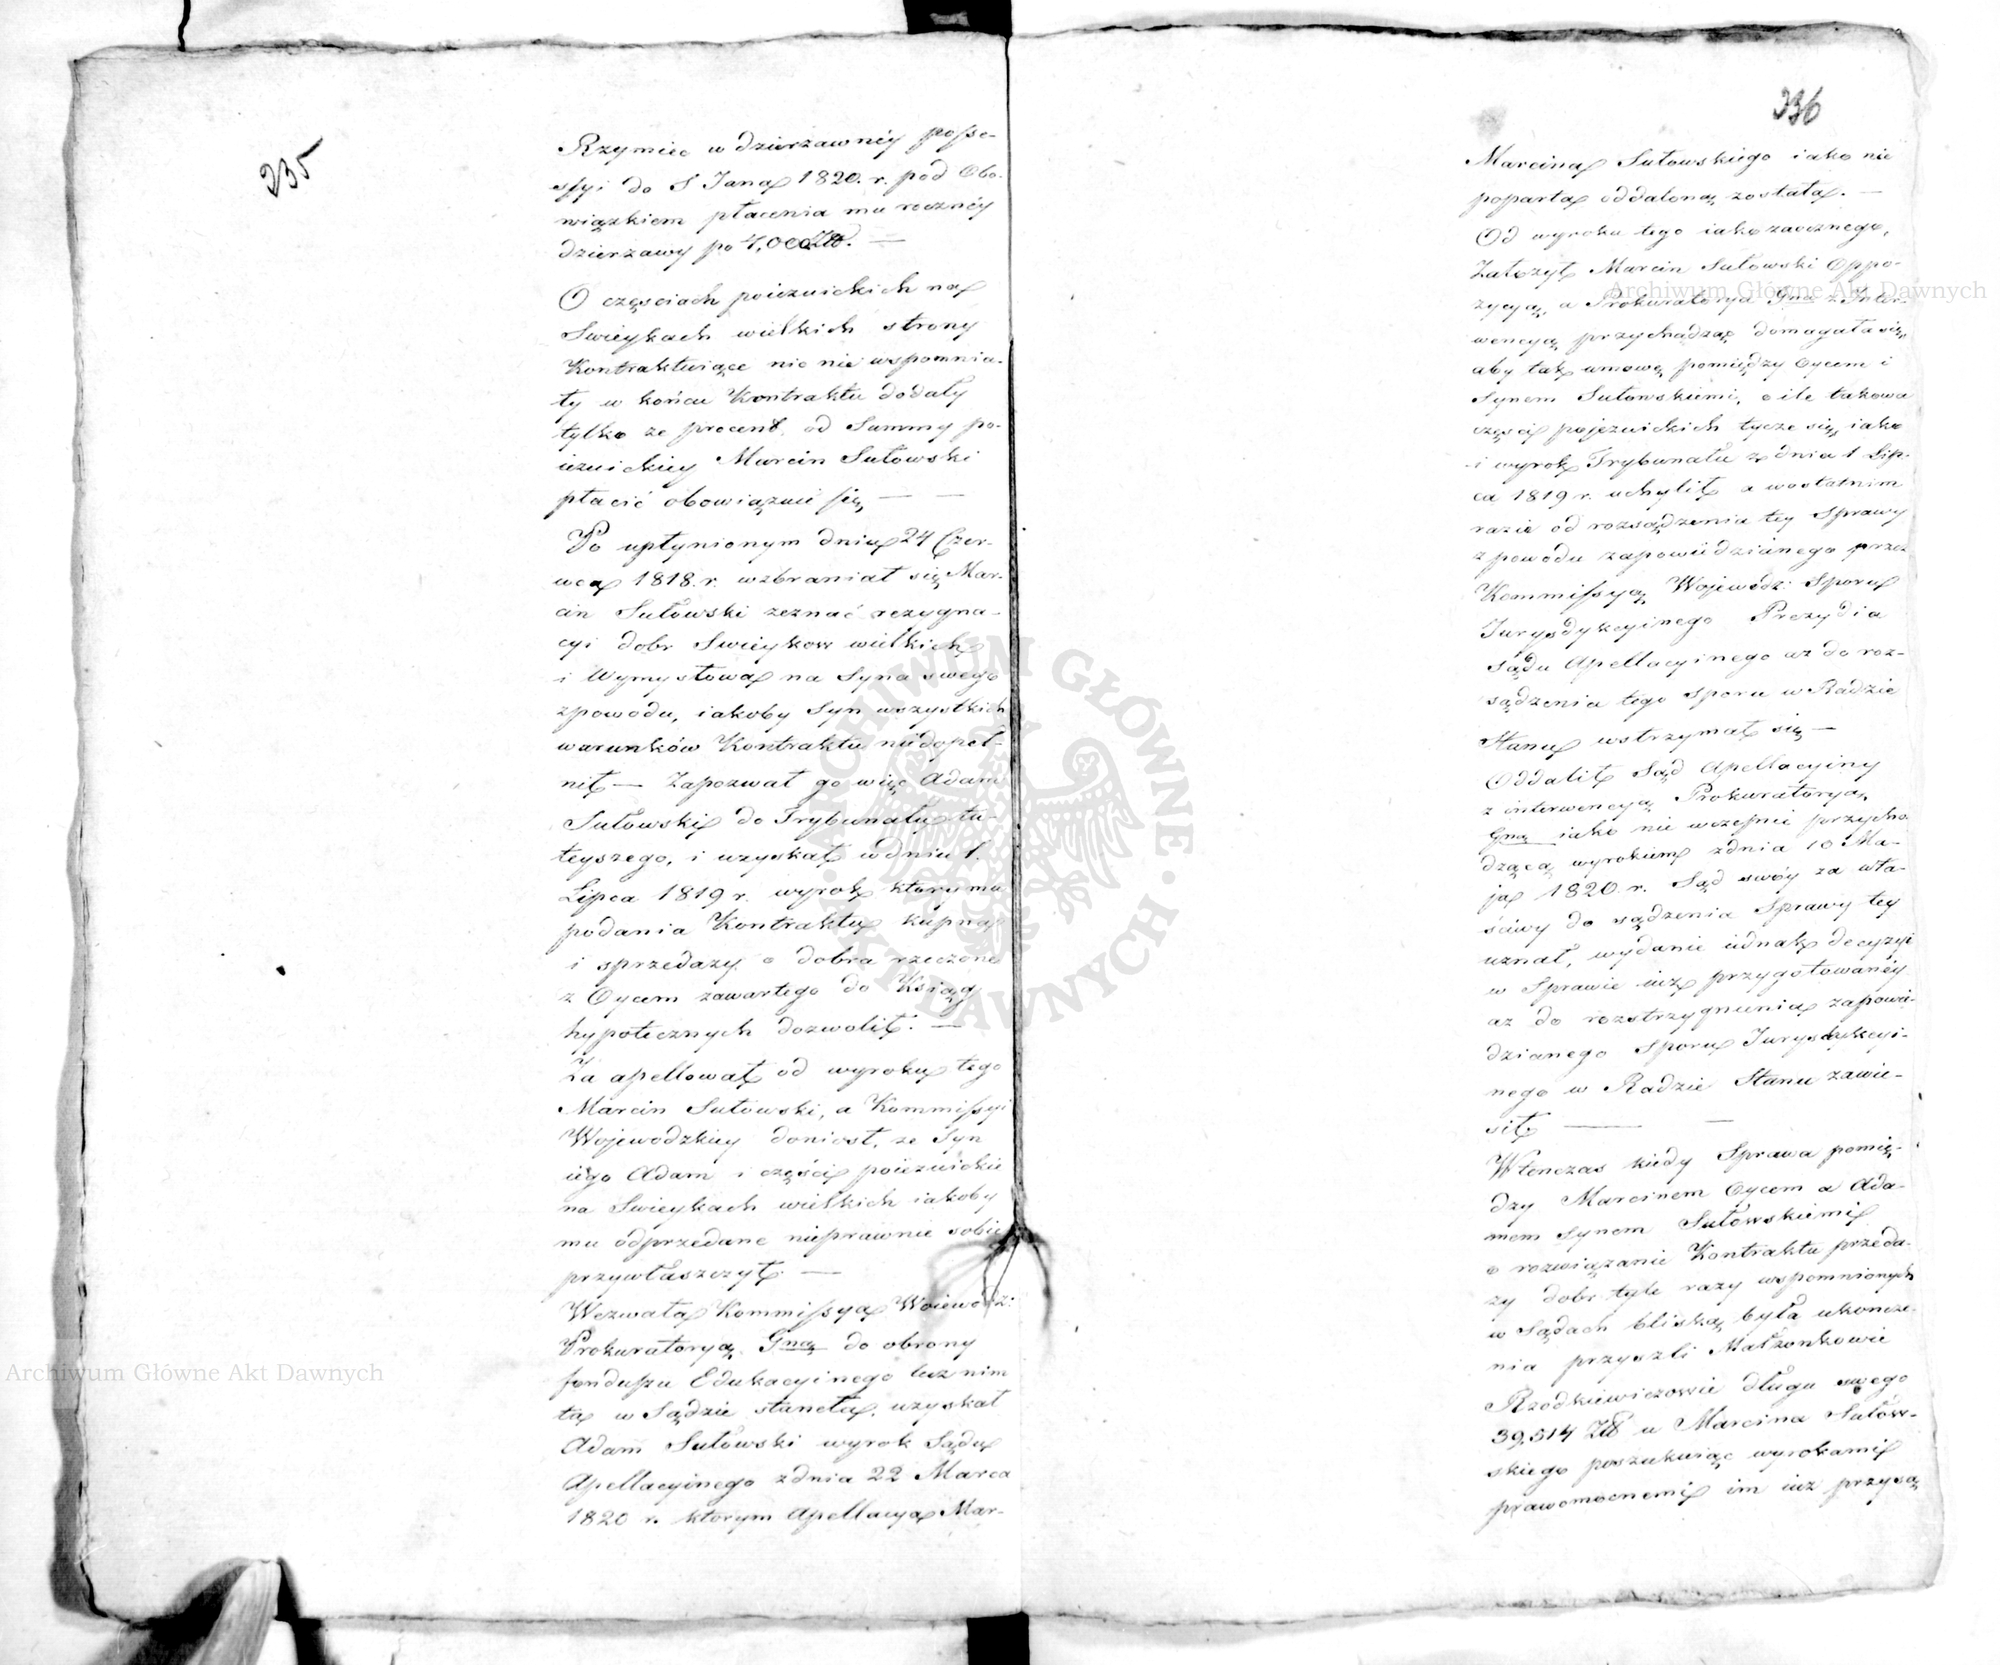 235
Rzymiec w dzierzawnéy posse-
ssyi do S Jana 1820. r. pod Obo-
wiązkiem płacenia mu rocznéy
dzierzawy po
O częsciach poiezuickich na
Swieykach wielkich strony
Kontraktuiące nic nie wspomnia-
ły w końcu Kontraktu dodały
tylko ze procent od Summy po-
iezuickiey Marcin Sułowski
płacić obowiązuie się, — —
Po upłynionym dniu 24 Czer-
wca 1818. r. wzbraniał się Mar-
cin Sułowski zeznać rezygna-
cyi dobr Swieykow wielkich
i Wymysłowa na Syna swego
zpowodu, iakoby Syn wszystkich
warunków Kontraktu niedopeł-
nił — Zapozwał go więc Adam
Sułowski do Trybunału tu-
teyszego, i uzyskał w dniu 1.
Lipca 1819 r. wyrok który mu
podania Kontraktu kupna
i sprzedazy o dobra rzeczone
z Oycem zawartego do Ksiąg
hypotecznych dozwolił. —
Za apellował od wyroku tego
Marcin Sułowski, a Kommissyi
Wojewodzkiey doniosł, ze Syn
iego Adam i części poiezuickie
na Swieykach wielkich iakoby
mu odprzedane nieprawnie sobie
przywłaszczył —
Wezwała Kommissya Woiewódz:
Prokuratoryą Gną do obrony
funduszu Edukacyinego lecz nim
ta w Sądzie stanęła, uzyskał
Adam Sułowski wyrok Sądu
Apellacyinego zdnia 22 Marca
1820 r. ktorym Apellacya Mar-
236
Marcina Sułowskiego iako nie
poparta oddaloną została. —
Od wyroku tego iako zaocznego,
Założył Marcin Sułowski Oppo-
zycyą, a Prokuratorya Gna z Inter-
wencyą przychodząc domagała się,
aby tak umowę pomiędzy Oycem i
Synem Sułowskiemi, o ile takowa
części pojezuickich tycze się, iako
i wyrok Trybunału z dnia 1 Lip-
ca 1819 r. uchylił a wostatnim
razie od rozsądzenia tey Sprawy
z powodu zapowiedzianego przez
Kommissyą Wojewódz: Sporu
Jurysdykcyinego Prezydia
Sądu Apellacyinego az do roz-
sądzenia tego sporu w Radzie
Stanu wstrzymał się —
Oddalił Sąd Apellacyiny
z interwencyą Prokuratoryą
Gną iako nie wcześnie przycho-
dzącą wyrokiem zdnia 10 Ma-
ja 1820 r. Sąd swóy za wła-
ściwy do sądzenia Sprawy tey
uznał, wydanie iednak decyzyi
w Sprawie iuz przygotowanéy
az do rozstrzygnienia zapowie-
dzianego Sporu Jurysdykcyi-
nego w Radzie Stanu zawie-
sił. — —
Wtenczas kiedy Sprawa pomię-
dzy Marcinem Oycem a Ada-
mem Synem Sułowskiemi
o rozwiązanie Kontraktu przeda-
zy dobr tyle razy wspomnionych
w Sądach bliską była ukończe-
nia przyszli Małżonkowie
Rzodkiewiczowie długu swego
39,514 Zł w Marcina Sułow-
skiego poszukuiąc wyrokami
prawomocnemi im iuz przysą
Archiwum Główne Akt Dawnych
Archiwum Główne Akt Dawnych
ARCHIWUM GŁÓWNE AKT DAWNYCH